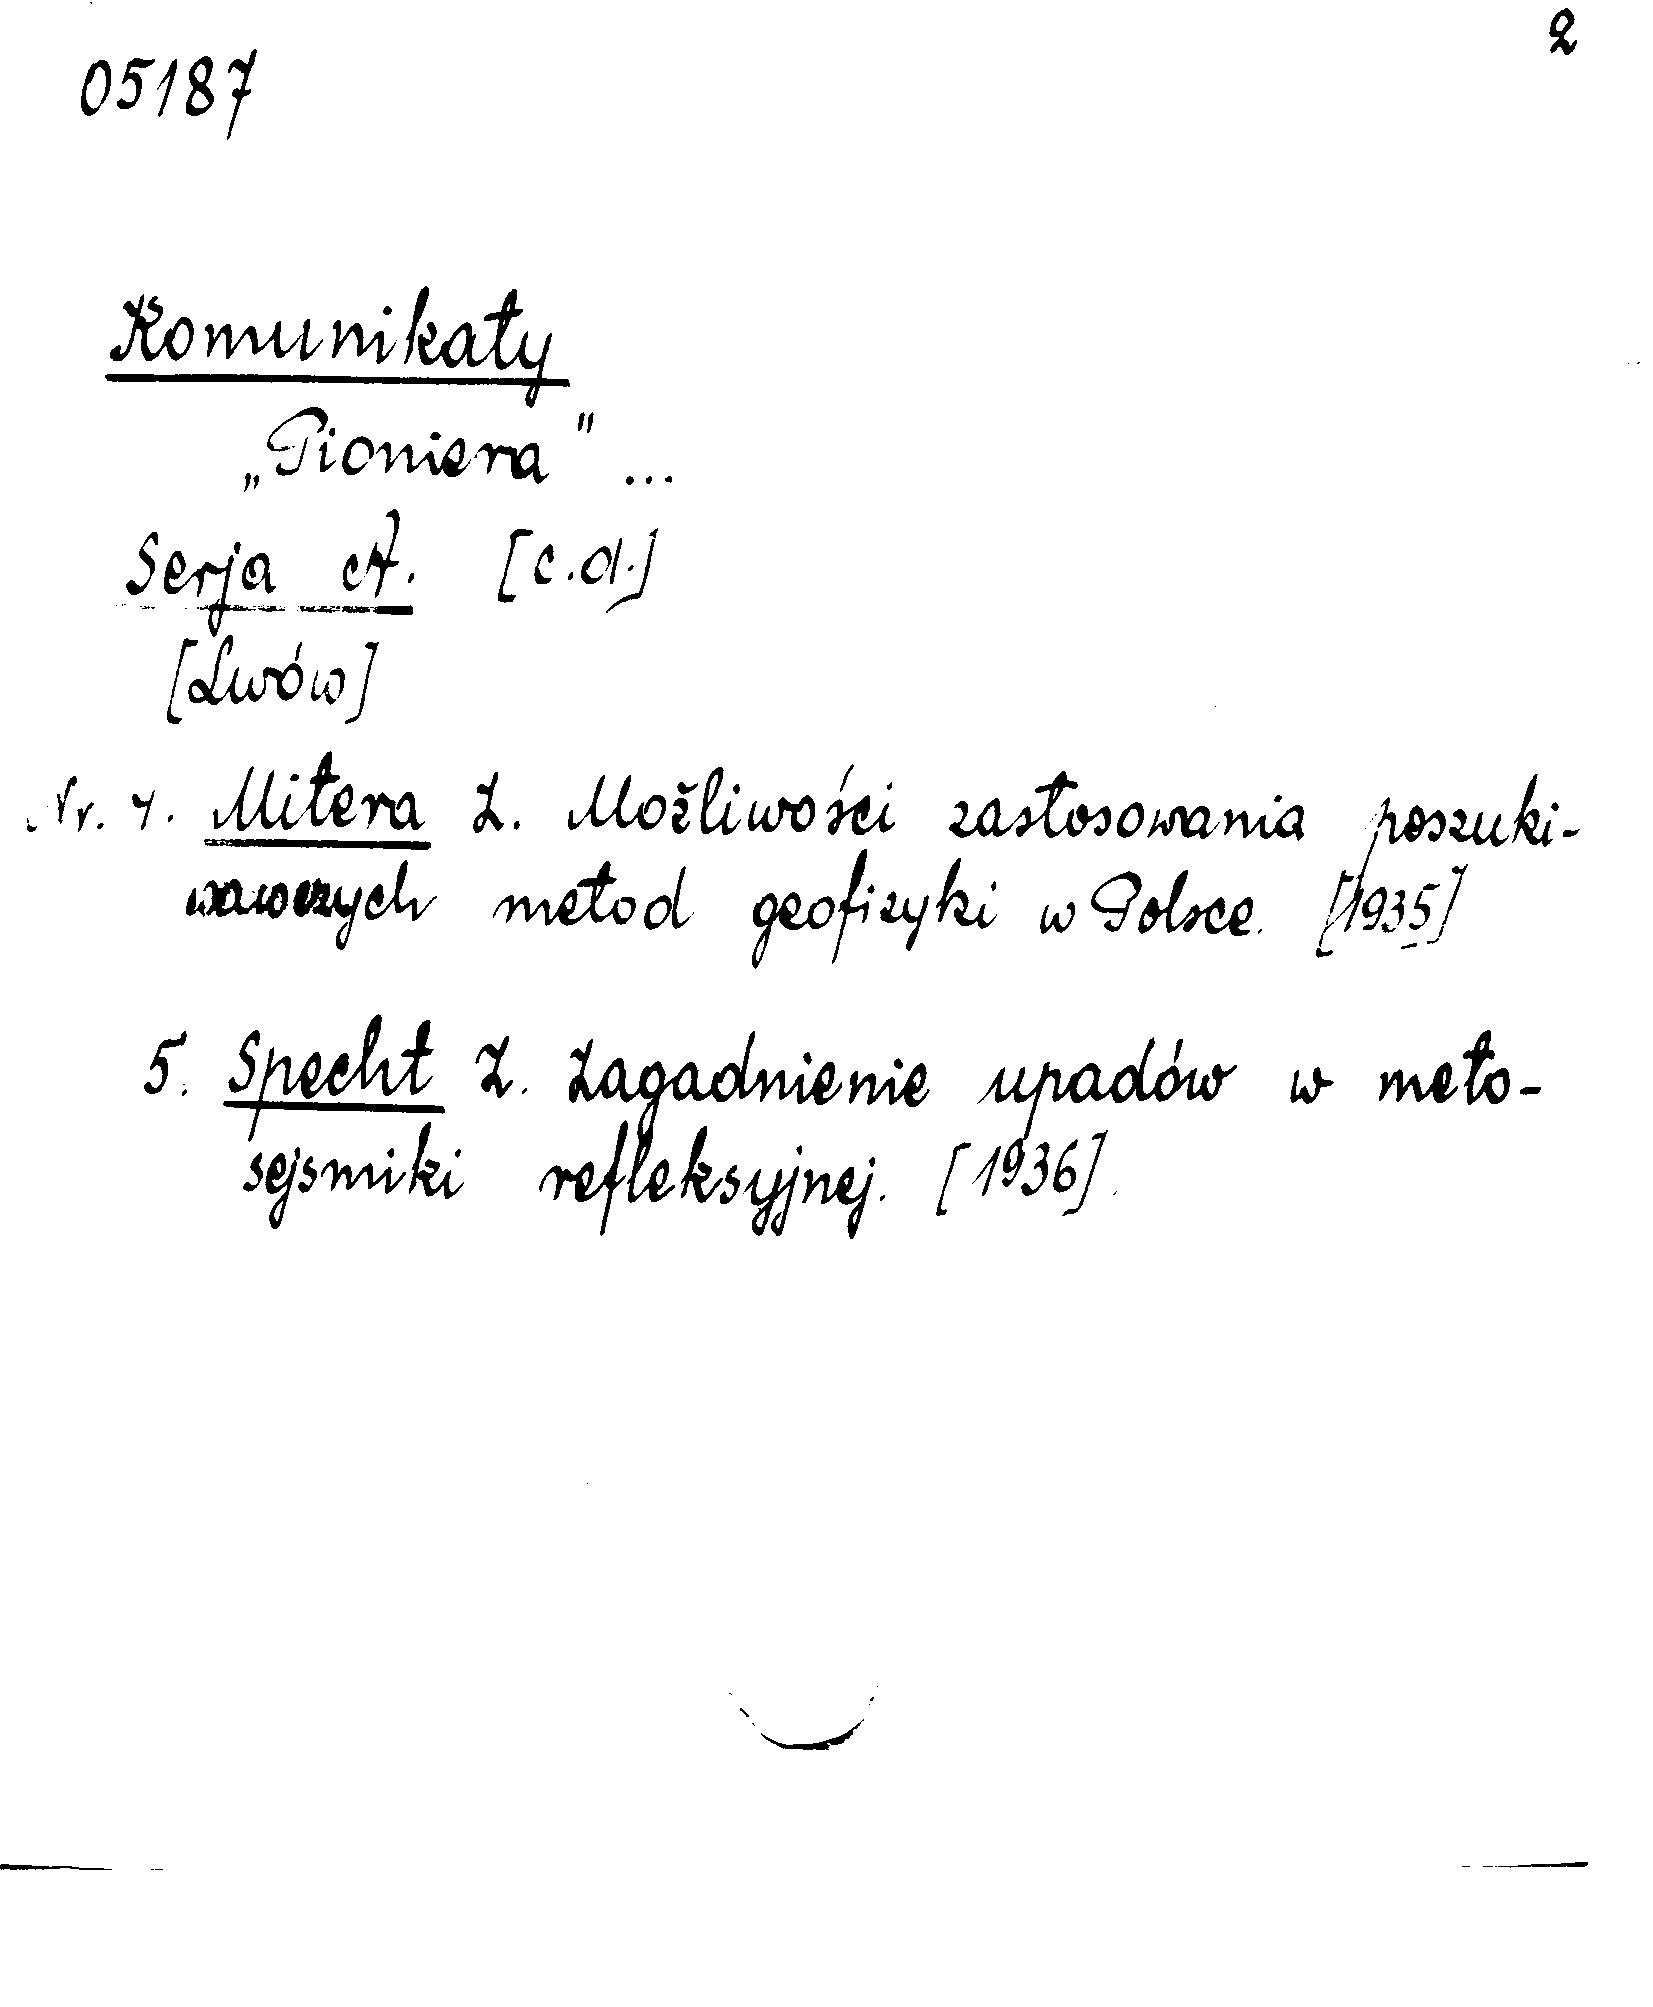 2
05187
Komunikaty
„Pioniera" ...
Serja A. [c.d.]
[Lwów]
Nr. 4. Mitera Z. Możliwości zastosowania poszuki-
wawczych metod geofizyki w Polsce. [1935]
5. Specht Z. Zagadnienie upadów w meto-
sejsmiki refleksyjnej. [1936]